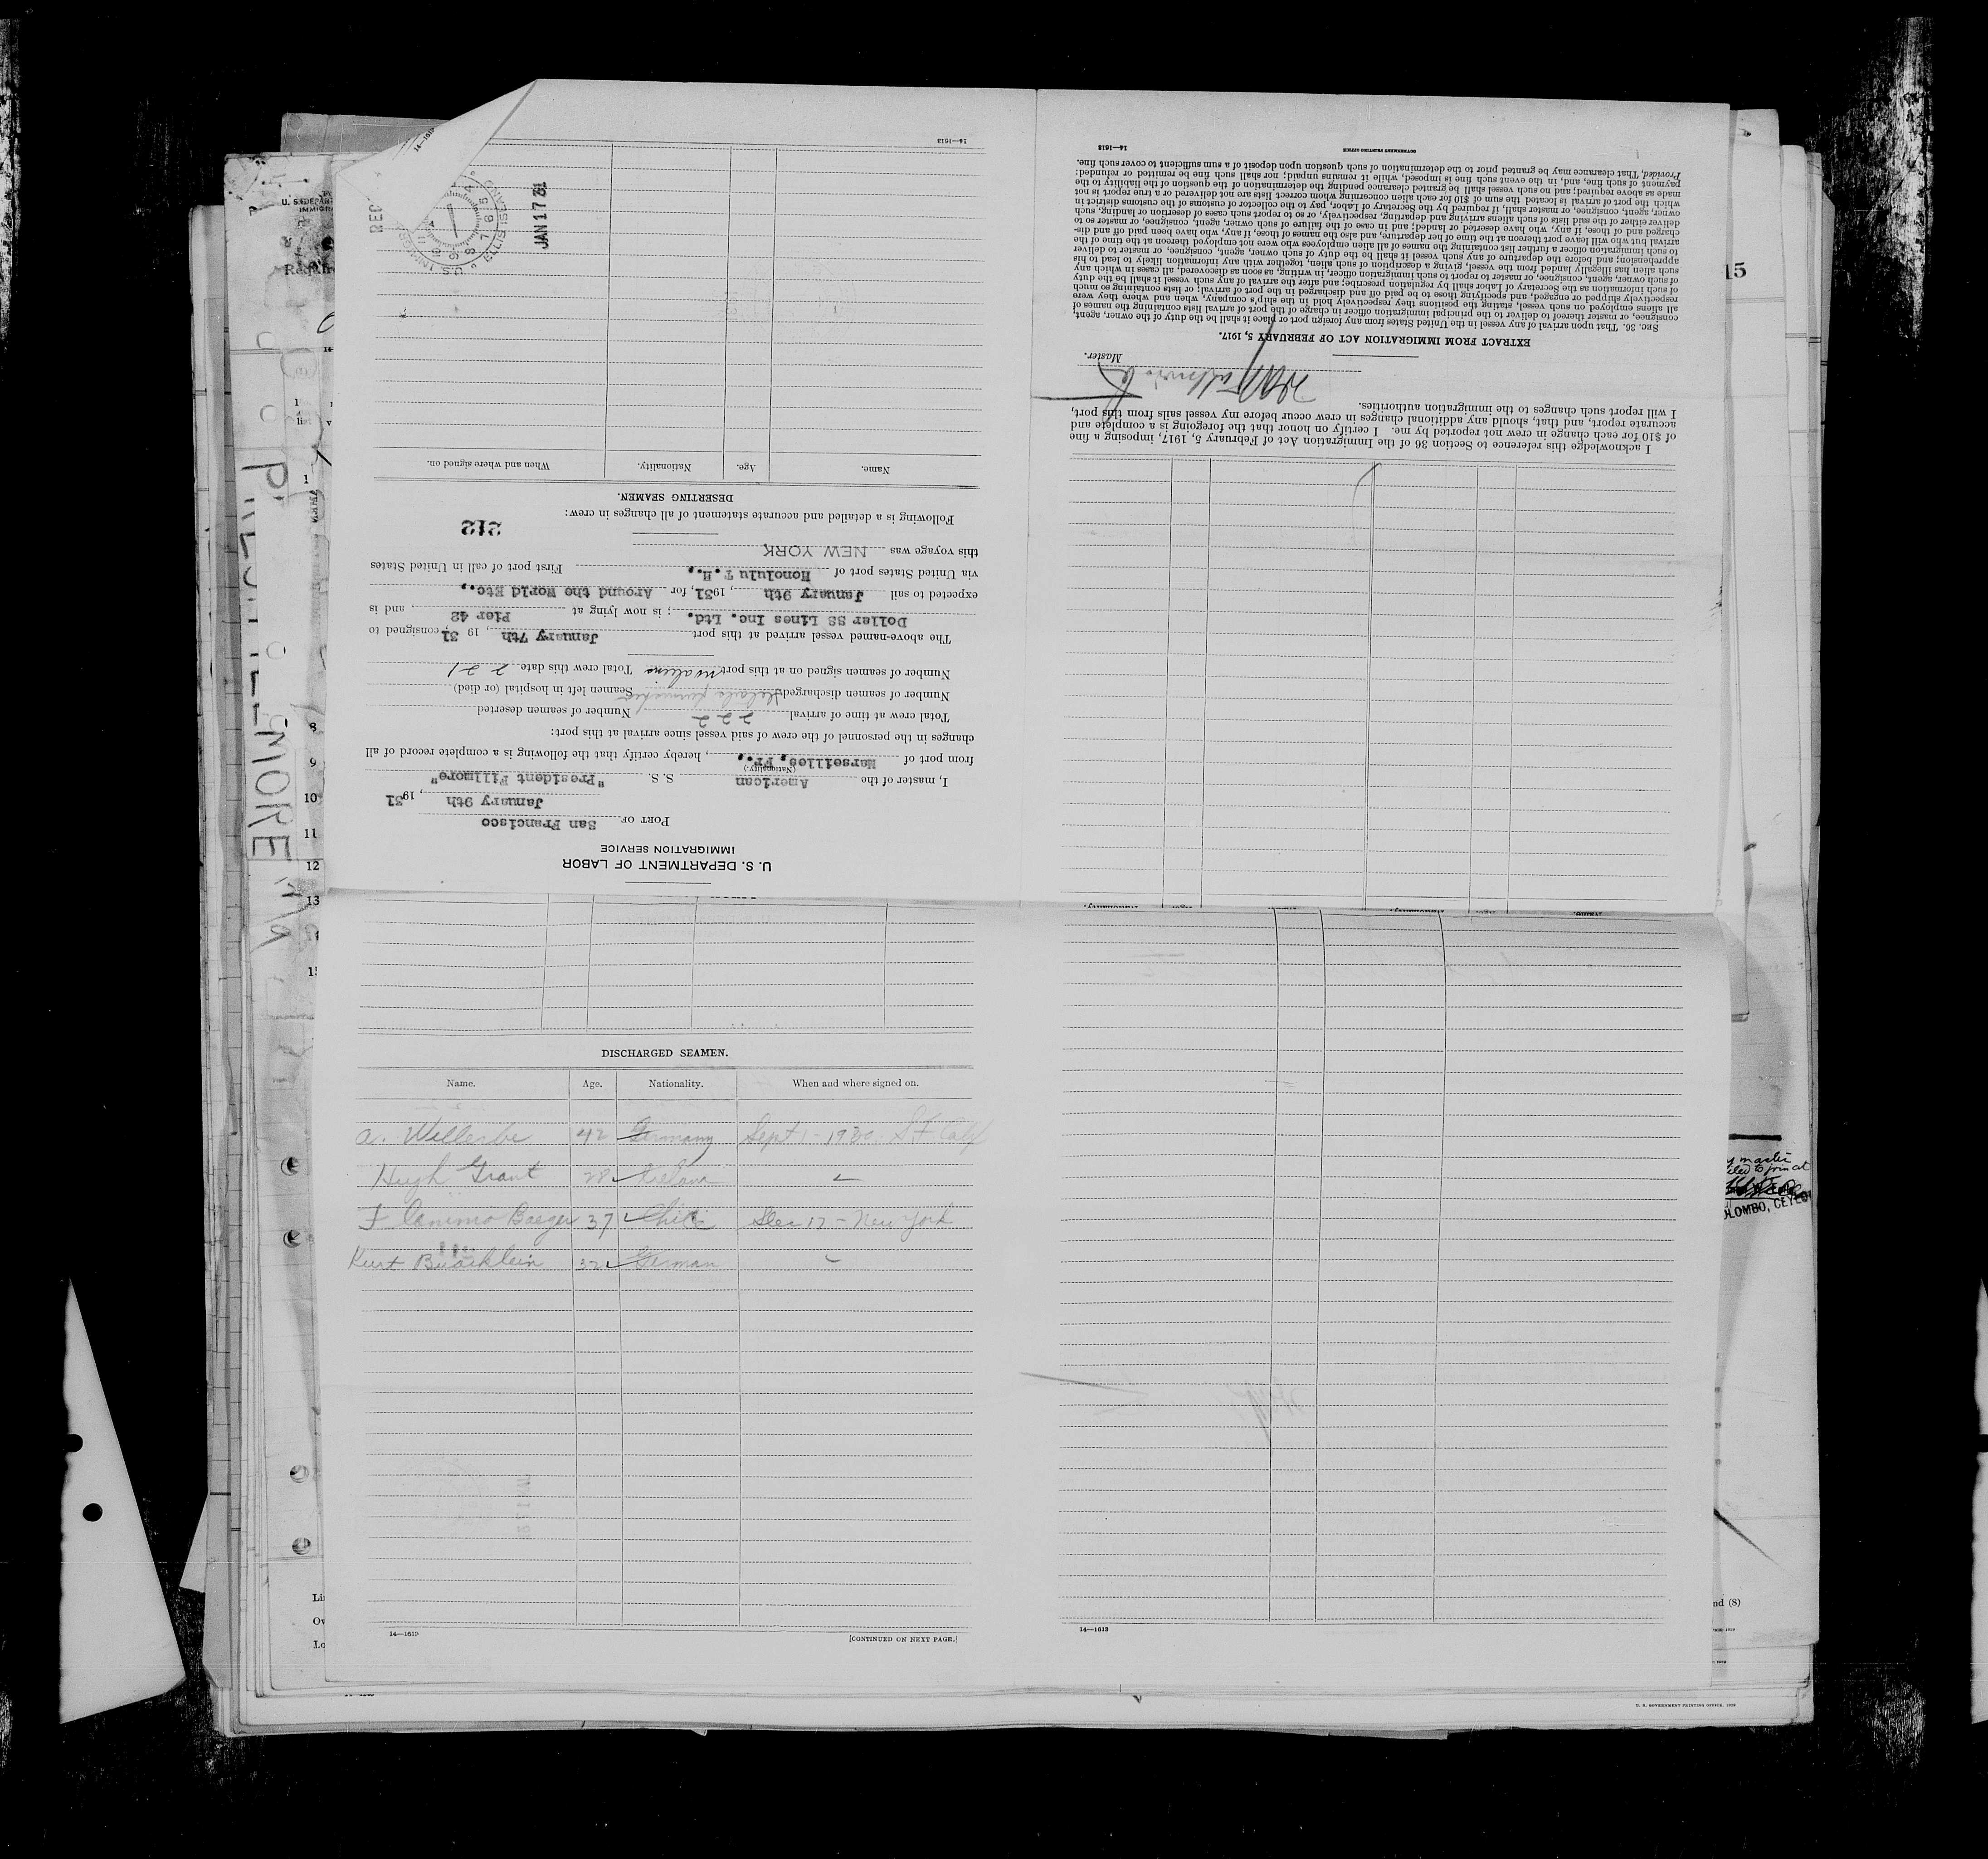 U. S. DEPARTMENT OF LABOR
IMMIGRATION SERVICE
PORT OF San Francisco
January 9th, 1931
I, master of the American S. S. "President Fillmore"
(Nationality.)
from port of Marseilles, Fr., hereby certify that the following is a complete record of all
changes in the personnel of the crew of said vessel since arrival at this port:
Total crew at time of arrival 222 Number of seamen deserted
Number of seamen discharged Seamen left in hospital (or died)
Number of seamen signed on at this port Total crew this date 221
The above-named vessel arrived at this port January 7th, 1931, consigned to
Dollar SS Lines Inc. Ltd.; is now lying at Pier 42 and is
expected to sail January 9th, 1931, for Around the World Etc.,
via United States port of Honolulu T.H., First port of call in United States
this voyage was NEW YORK
212
Following is a detailed and accurate statement of all changes in crew:
DESERTING SEAMEN.
Name. Age. Nationality. When and where signed on.
JAN 17 31
14—1613
I acknowledge this reference to Section 36 of the Immigration Act of February 5, 1917, imposing a fine
of $10 for each change in crew not reported by me. I certify on honor that the foregoing is a complete and
accurate report, and that, should any additional changes in crew occur before my vessel sails from this port,
I will report such changes to the immigration authorities.
Master.
EXTRACT FROM IMMIGRATION ACT OF FEBRUARY 5, 1917.
SEC. 36. That upon arrival of any vessel in the United States from any foreign port or place it shall be the duty of the owner, agent,
consignee, or master thereof to deliver to the principal immigration officer in charge of the port of arrival lists containing the names of
all aliens employed on such vessel, stating the positions they respectively hold in the ship's company, when and where they were
respectively shipped or engaged, and specifying those to be paid off and discharged in the port of arrival; or lists containing so much
of such information as the Secretary of Labor shall by regulation prescribe; and after the arrival of any such vessel it shall be the duty
of such owner, agent, consignee, or master to report to such immigration officer, in writing, as soon as discovered, all cases in which any
such alien has illegally landed from the vessel, giving a description of such alien, together with any information likely to lead to his
apprehension; and before the departure of any such vessel it shall be the duty of such owner, agent, consignee, or master to deliver
to such immigration officer a further list containing the names of all alien employees who were not employed thereon at the time of the
arrival but who will leave port thereon at the time of her departure, and also the names of those, if any, who have been paid off and dis-
charged and of those, if any, who have deserted or landed; and in case of the failure of such owner, agent, consignee, or master so to
deliver either of the said lists of such aliens arriving and departing, respectively, or so to report such cases of desertion or landing, such
owner, agent, consignee, or master, shall, if required by the Secretary of Labor, pay to the collector of customs of the customs district in
which the port of arrival is located the sum of $10 for each alien concerning whom correct lists are not delivered or a true report is not
made as above required; and no such vessel shall be granted clearance pending the determination of the question of the liability to the
payment of such fine, and, in the event such fine is imposed, while it remains unpaid; nor shall such fine be remitted or refunded:
Provided, That clearance may be granted prior to the determination of such question upon deposit of a sum sufficient to cover such fine.
14—1613 GOVERNMENT PRINTING OFFICE
DISCHARGED SEAMEN.
Name. Age. Nationality. When and where signed on.
a. Willerbe 42 Germany Sept 1 - 1930. S F Calf
Hugh Grant 28
37 Chile Dec 17 - New York
Kurt 32 German
14—1613 [CONTINUED ON NEXT PAGE.]
14—1613
8
9
10
11
12
13
15
COLOMBO, CEYLON
U. S. GOVERNMENT PRINTING OFFICE